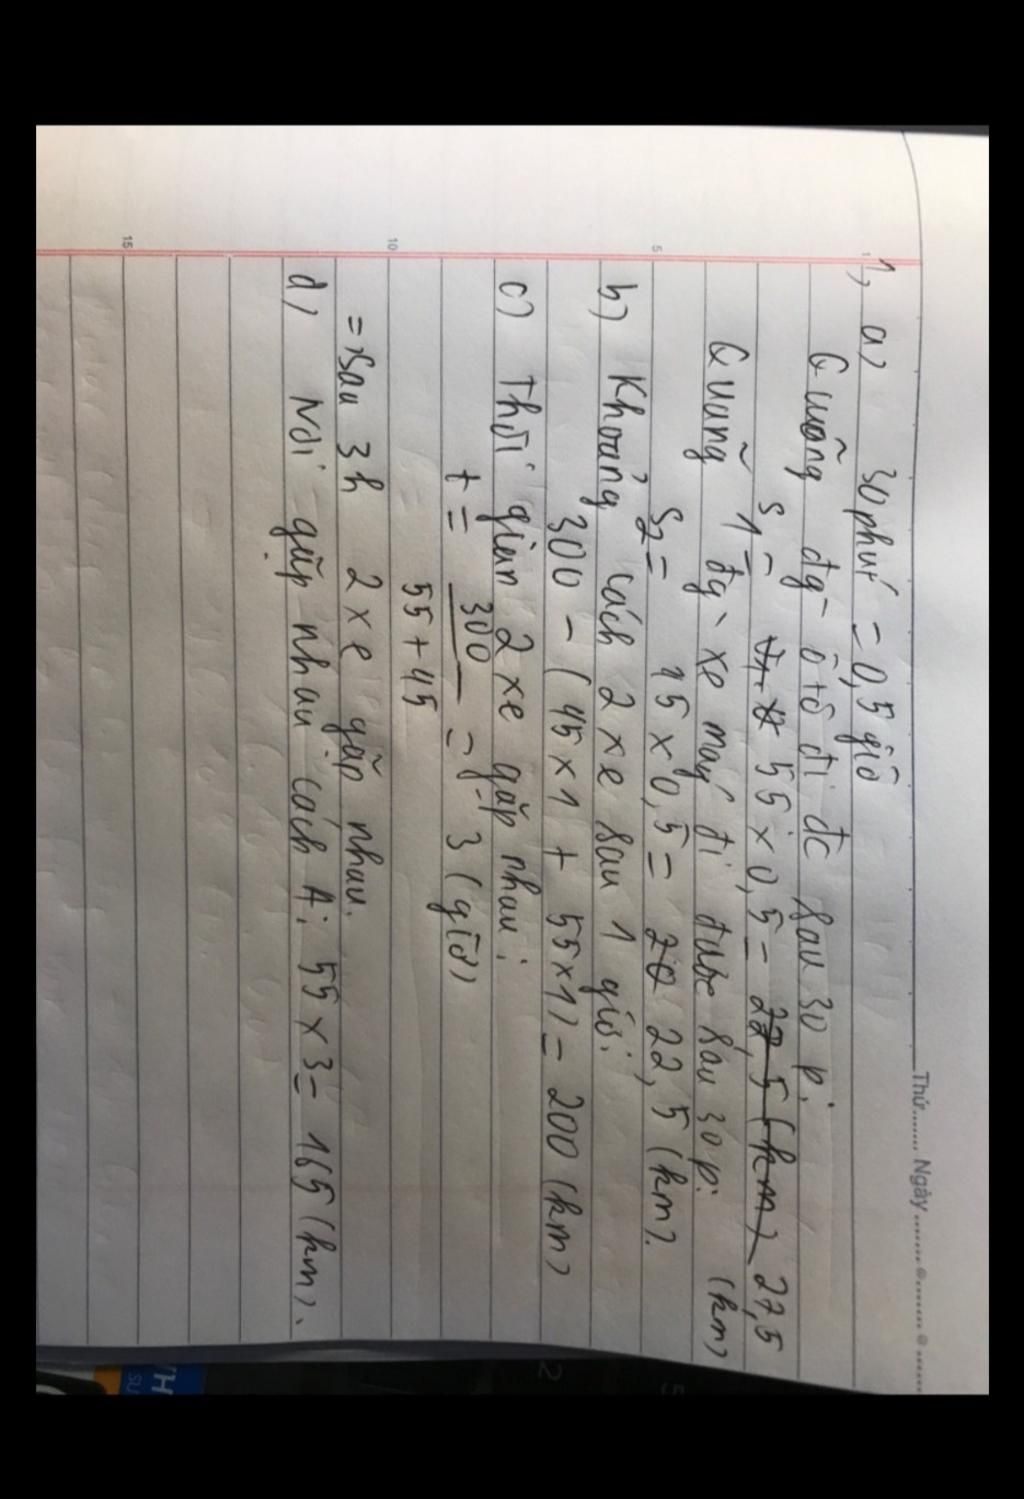 Thứ........ Ngày ........
1, a) 30 phút = 0,5 giờ
Quãng đg ô tô đi đc sau 30 p:
S1 = 55 x 0,5 = 22,5 (km) 27,5
(km)
Quãng đg xe máy đi được sau 30 p:
S2 = 45 x 0,5 = 20 22,5 (km).
b) Khoảng cách 2 xe sau 1 giờ:
300 - (45 x 1 + 55 x 1) = 200 (km)
c) Thời gian 2 xe gặp nhau:
t = 300 = 3 (giờ)
55 + 45
=> Sau 3h 2 xe gặp nhau.
d) Nơi gặp nhau cách A: 55 x 3 = 165 (km).
1
5
10
15
2
5
TH
SU